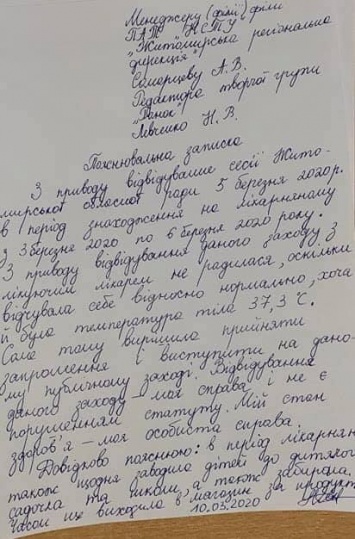 Менеджеру (філії) філи
ПАТ НСТУ
"Житомирська регіональна
дирекція"
Самарцеву А.В.
Редактора творчої групи
"Ранок"
Левченко Н.В.
Пояснювальна записка
З приводу відвідування сесії Жито-
мирської обласної ради 5 березня 2020р.
в період знаходження на лікарняному
з 3 березня 2020 по 6 березня 2020 року.
З приводу відвідування даного заходу з
лікуючим лікарем не радилася, оскільки
відчувала себе відносно нормально, хоча
й була температура тіла 37,3 °С.
Саме тому вирішила прийняти
запрошення і виступити на дано-
му публічному заході. Відвідування
даного заходу – моя справа і не є
порушенням статуту. Мій стан
здоров'я – моя особиста справа.
Довідково пояснюю: в період лікарнян
також щодня заводила дітей до дитячого
садочка та школи, а також забирала.
Часом ще виходила в магазин за продукт
10.03.2020